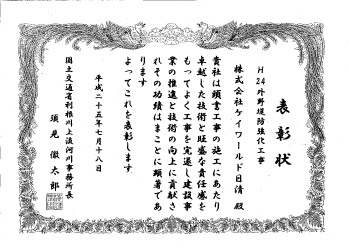 表彰状
H24外野堤防強化工事
株式会社ケイワールド日清 殿
貴社は頭書工事の施工にあたり
卓越した技術と旺盛な責任感を
もってよく工事を完遂し建設事
業の推進と技術の向上に貢献さ
れその功績はまことに顕著であ
ります
よってこれを表彰します
平成二十五年七月十八日
国土交通省利根川上流河川事務所長
須見徹太郎